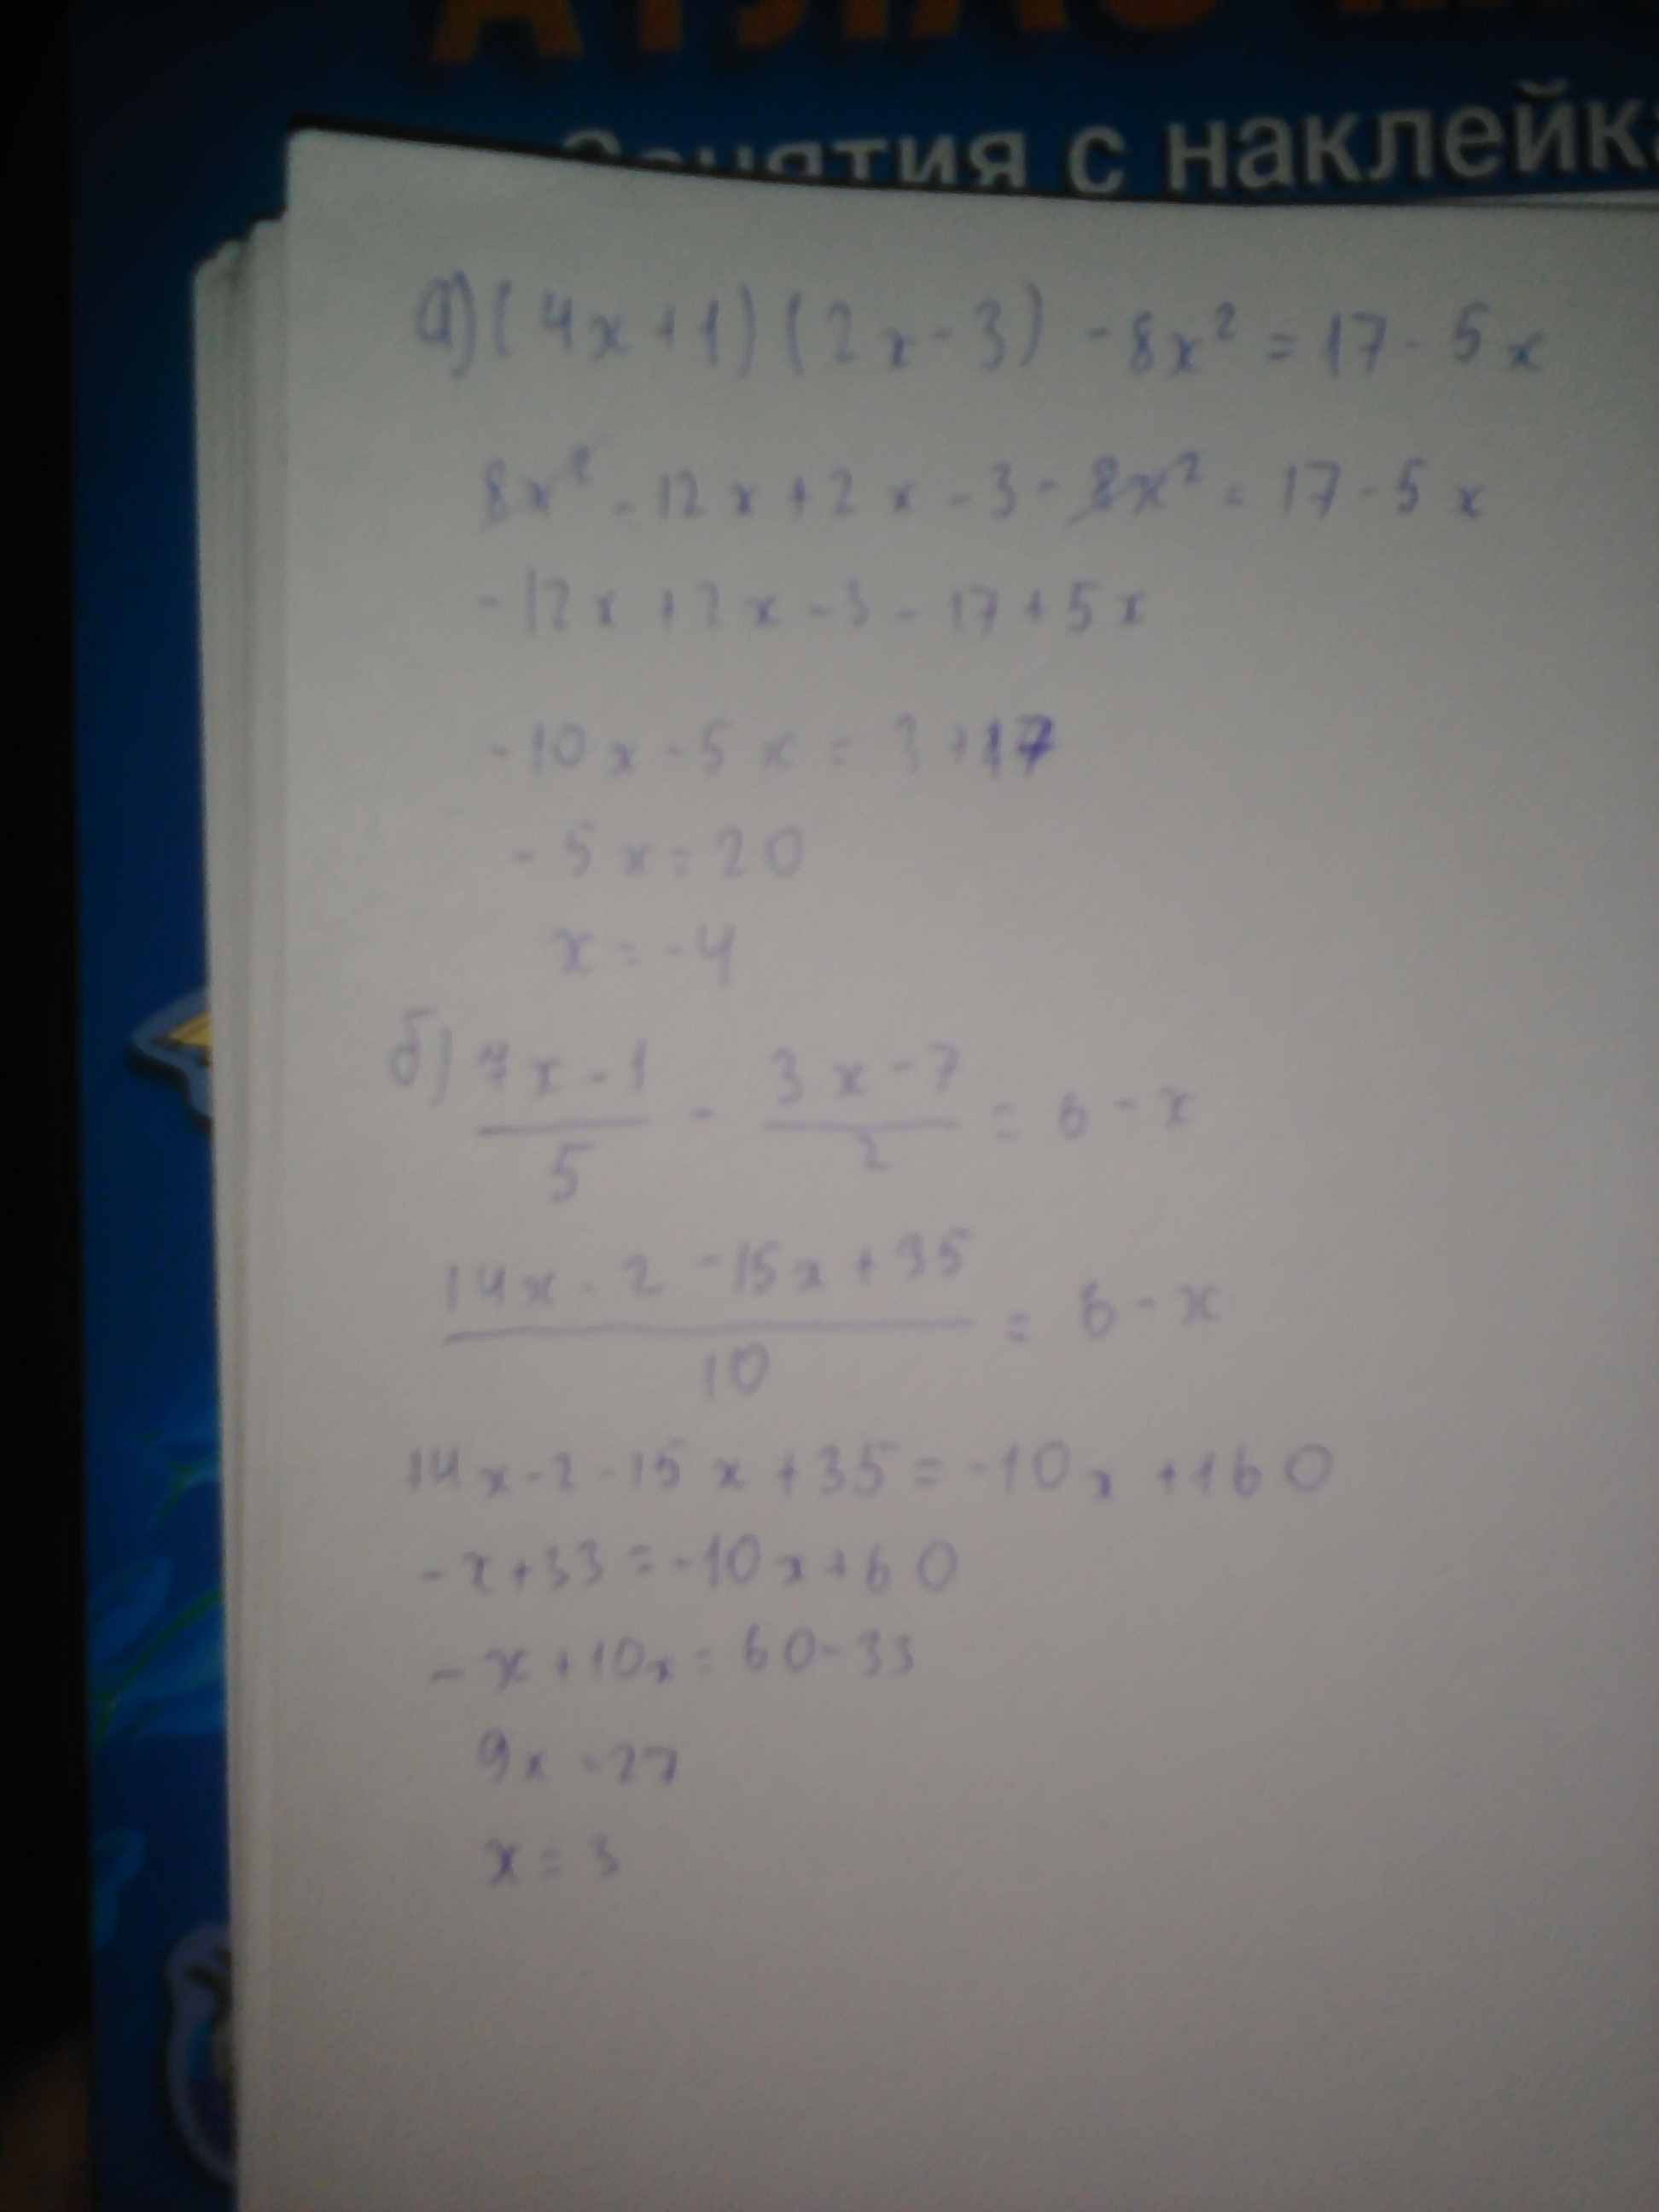 АТЛАС
Занятия с наклейк
а) (4x+1)(2x-3) - 8x² = 17 - 5x
8x² - 12x + 2x - 3 - 8x² = 17 - 5x
-12x + 2x - 3 - 17 + 5x
-10x - 5x = 3 + 17
-5x = 20
x = -4
б) (7x-1)/5 - (3x-7)/2 = 6 - x
(14x - 2 - 15x + 35)/10 = 6 - x
14x - 2 - 15x + 35 = -10x + 160
-x + 33 = -10x + 60
-x + 10x = 60 - 33
9x = 27
x = 3